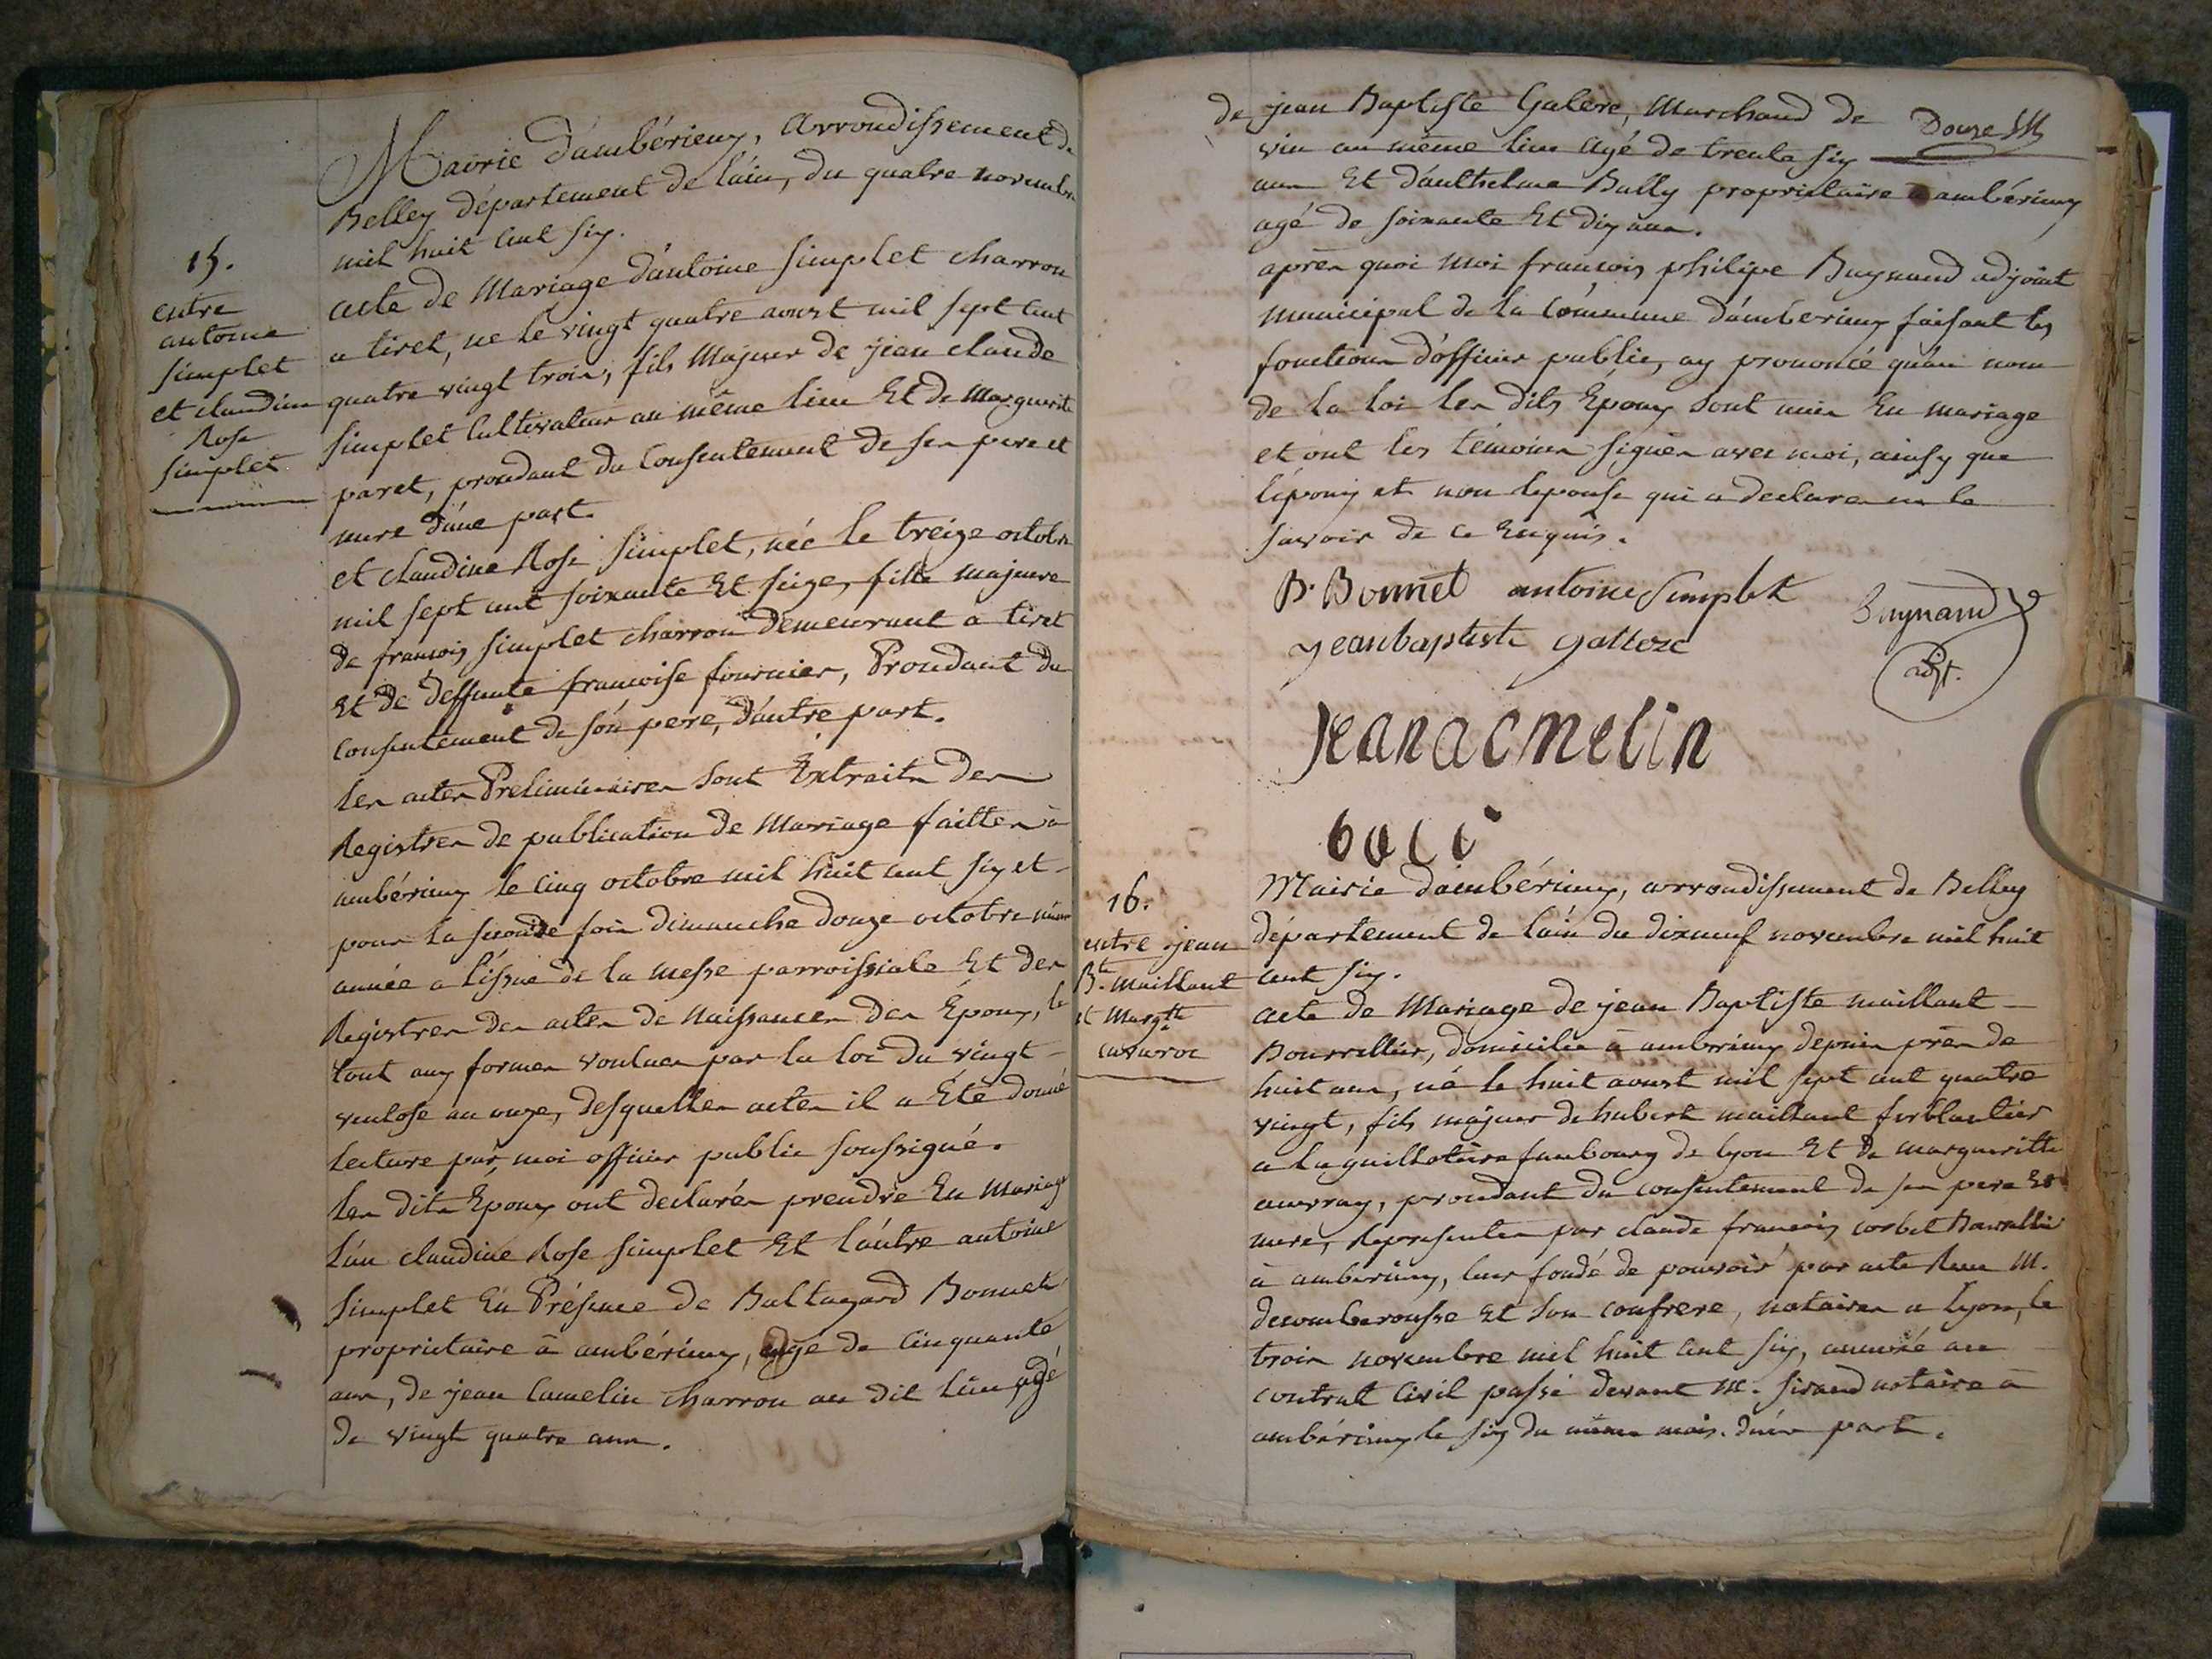 15.
entre
antoine
simplet
et claudine
Rose
simplet
Mairie d'ambérieux, arrondissement de
Belley département de l'ain, du quatre novembre
mil huit cent six.
acte de Mariage d'antoine simplet charron
a tiret, ne le vingt quatre aoust mil sept cent
quatre vingt trois, fils Majeur de jean claude
simplet Cultivateur au même lieu Et de Marguerite
paret, procédant du Consentement de ses pere et
mere d'une part.
et claudine Rose simplet, née le treize octobre
mil sept cent soixante Et seize, fille majeure
de françois simplet charron demeurant a tiret
Et de deffunte francoise fournier, Procédant du
Consentement de son pere, d'autre part.
les actes Preliminaires sont Extraits des
Registres de publication de Mariage faittes à
ambérieux le cinq octobre mil huit cent six et
pour la seconde fois dimanche douze octobre même
année a l'issue de la messe parroissiale Et des
Registres des actes de Naissances des Époux, le
tout aux formes voulues par la loi du vingt
ventose an onze, desquelles actes il a Été donné
lecture par moi officier public soussigné.
les dits Epoux ont declarés prendre En Mariage
l'un claudine Rose simplet Et l'autre antoine
simplet En Présence de Baltazard Bonnet
proprietaire à ambérieux, agé de Cinquante
ans, de jean Camelin charron au dit lieu agé
de vingt quatre ans.
de jean Baptiste Galere, Marchand de
Douze
vin au même lieu agé de trente six
ans Et d'anthelme Bully proprietaire à ambérieux
agé de soixante Et dix ans.
après quoi moi françois philipe Buynand adjoint
municipal de la Commune d'ambérieux faisant les
fonctions d'officier public, ay prononcé qu'au nom
de la loi les dits Époux sont unis En mariage
et ont les témoins signés avec moi, ainsy que
l'époux et non l'epouse qui a declare ne le
savoir de ce Enquis.
B. Bonnet antoine Simplet
Buynand
jeanbaptiste galleze
adjt.
jeanacmelin
16.
entre jean
Bte. maillant
et Margte
Mairie d'ambérieux, arrondissement de Belley
département de l'ain du dixneuf novembre mil huit
cent six.
acte de Mariage de jean Baptiste maillant
Bourrellier, domicilié à ambérieux depuis près de
huit ans, né le huit aoust mil sept cent quatre
vingt, fils majeur de hubert maillant ferblantier
a la guillotière faubourg de lyon Et de margueritte
auvray, procédant du consentement de ses pere Et
mere, Representés par claude françois corbet Bourrellier
à ambérieux, leur fondé de pouvoir par acte Recu M.
decomberousse Et son confrere, notaires a lyon, le
trois novembre mil huit cent six, annexé au
contrat Civil passé devant M. sirand notaire à
ambérieux le six du même mois. d'une part.